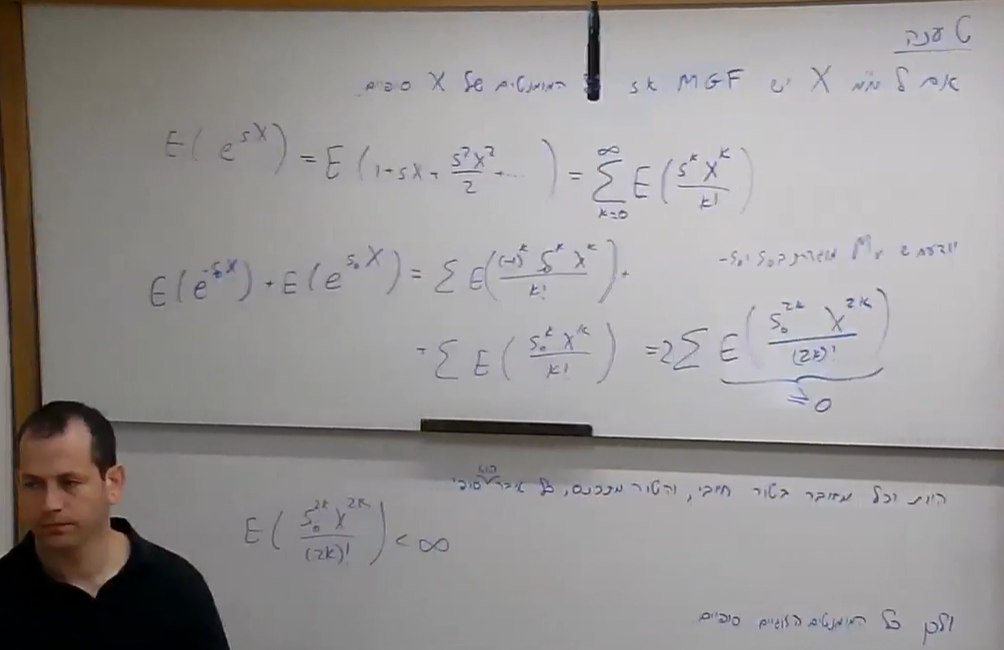 טענה
אם ל מ"מ X יש MGF אז המומנטים של X סופיים.
E(e^{sX}) = E(1+sX+\frac{s^2X^2}{2}+...) = \sum_{k=0}^{∞} E(\frac{s^k X^k}{k!})
יודעת ש M_X מוגדרת ב s_0 ו -s_0
E(e^{-s_0X}) + E(e^{s_0X}) = \sum E(\frac{(-1)^k s_0^k X^k}{k!}) +
+ \sum E(\frac{s_0^k X^k}{k!}) = 2\sum E(\frac{s_0^{2k} X^{2k}}{(2k)!})
≥ 0
היות וכל מחובר בטור חיובי, והטור מתכנס, כל איבר הוא סופי
E(\frac{s_0^{2k} X^{2k}}{(2k)!}) < ∞
ולכן כל המומנטים הזוגיים סופיים